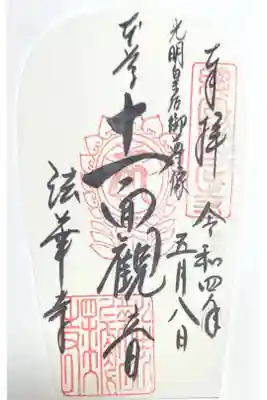 奉拝
令和四年
五月八日
光明皇后御尊像
本尊
十一面觀音
法華寺